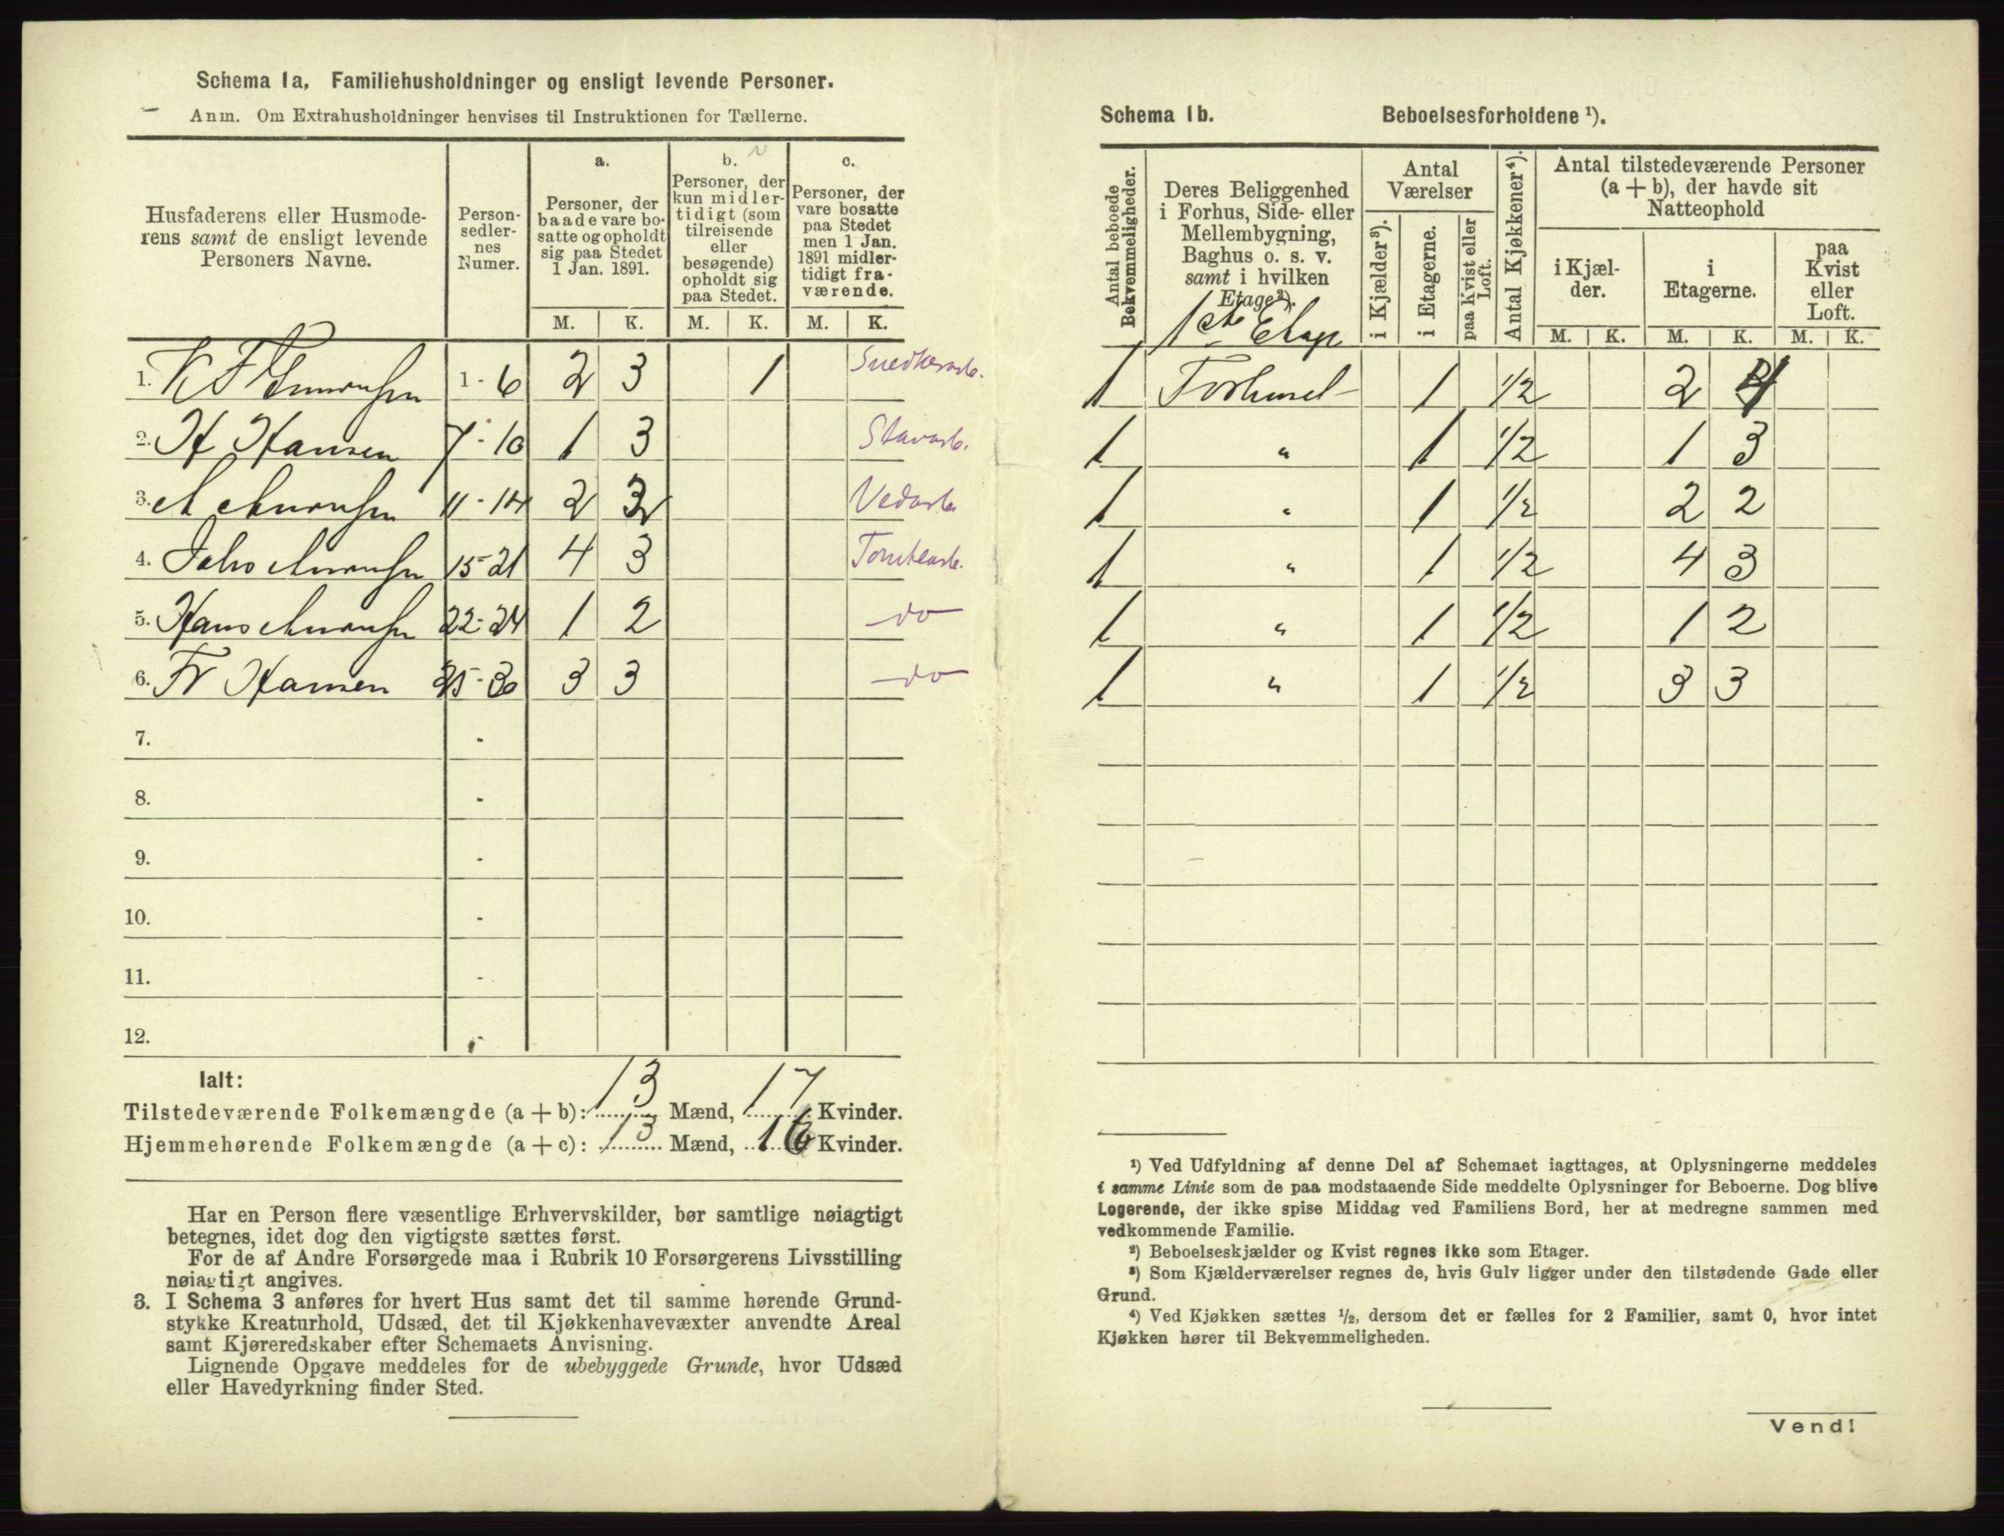 Schema 1a, Familiehusholdninger og ensligt levende Personer.
Anm. Om Extrahusholdninger henvises til Instruktionen for Tællerne.
Husfaderens eller Husmode-
rens samt de ensligt levende
Personers Navne.
Person-
sedler-
nes
Numer.
a.
Personer, der
baade vare bo-
satte og opholdt
sig paa Stedet
1 Jan. 1891.
b.
Personer, der
kun midler-
tidigt (som
tilreisende
eller
besøgende)
opholdt sig
paa Stedet.
c.
Personer, der
vare bosatte
paa Stedet
men 1 Jan.
1891 midler-
tidigt fra-
værende.
M. K. M. K. M. K.
1. 1 - 6 2 3 1
2. H Hansen 7 - 10 1 3
3. 11 - 14 2 2 Vedarb.
4. 15 - 21 4 3 Tomtearb.
5. Hans 22 - 24 1 2 do
6. Fr Hansen 25 - 30 3 3 do
7. -
8. -
9. -
10. -
11. -
12. -
Ialt:
Tilstedeværende Folkemængde (a + b): 13 Mænd, 17 Kvinder.
Hjemmehørende Folkemængde (a + c): 13 Mænd, 16 Kvinder.
Har en Person flere væsentlige Erhvervskilder, bør samtlige nøiagtigt
betegnes, idet dog den vigtigste sættes først.
For de af Andre Forsørgede maa i Rubrik 10 Forsørgerens Livsstilling
nøiagtigt angives.
3. I Schema 3 anføres for hvert Hus samt det til samme hørende Grund-
stykke Kreaturhold, Udsæd, det til Kjøkkenhavevæxter anvendte Areal
samt Kjøreredskaber efter Schemaets Anvisning.
Lignende Opgave meddeles for de ubebyggede Grunde, hvor Udsæd
eller Havedyrkning finder Sted.
Schema 1b. Beboelsesforholdene ¹).
Antal beboede
Bekvemmeligheder.
Deres Beliggenhed
i Forhus, Side- eller
Mellembygning,
Baghus o. s. v.
samt i hvilken
Etage ²).
1ste Etage
Antal
Værelser
i Kjælder ³).
i Etagerne.
paa Kvist eller
Loft.
Antal Kjøkkener ⁴).
Antal tilstedeværende Personer
(a + b), der havde sit
Natteophold
i Kjæl-
der.
i
Etagerne.
paa
Kvist
eller
Loft.
M. K. M. K. M. K.
1 Forhuset 1 1/2 2 4
1 " 1 1/2 1 3
1 " 1 1/2 2 2
1 " 1 1/2 4 3
1 " 1 1/2 1 2
1 " 1 1/2 3 3
¹) Ved Udfyldning af denne Del af Schemaet iagttages, at Oplysningerne meddeles
i samme Linie som de paa modstaaende Side meddelte Oplysninger for Beboerne. Dog blive
Logerende, der ikke spise Middag ved Familiens Bord, her at medregne sammen med
vedkommende Familie.
²) Beboelseskjælder og Kvist regnes ikke som Etager.
³) Som Kjælderværelser regnes de, hvis Gulv ligger under den tilstødende Gade eller
Grund.
⁴) Ved Kjøkken sættes ½, dersom det er fælles for 2 Familier, samt 0, hvor intet
Kjøkken hører til Bekvemmeligheden.
Vend!